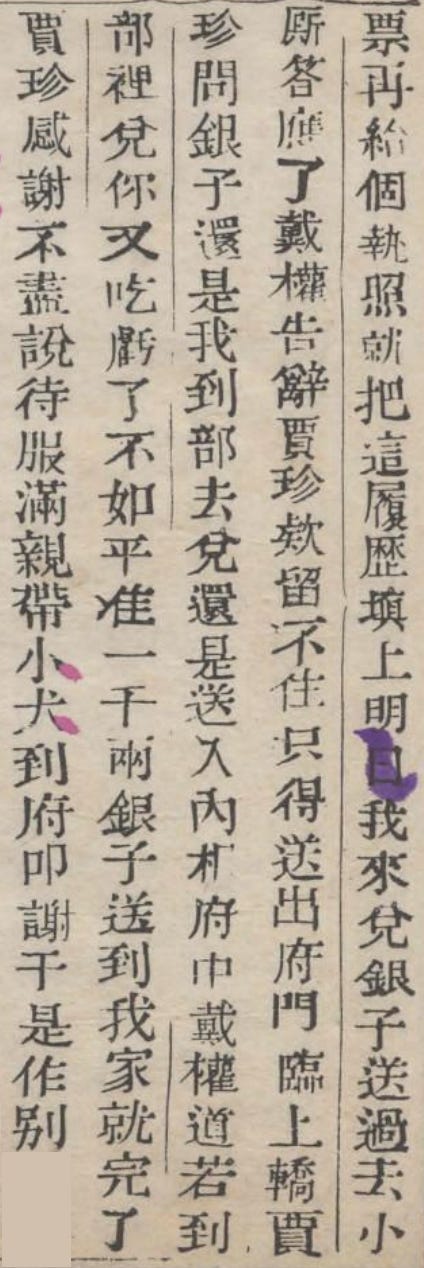 票再給個執照就把這履歷塡上明日我來兌銀子送過去小
厮答應了戴權告辭賈珍欵留不住只得送出府門臨上轎賈
珍問銀子還是我到部去兌還是送入內相府中戴權道若到
部裡兌你又吃虧了不如平准一千兩銀子送到我家就完了
賈珍感謝不盡說待服滿親帶小犬到府叩謝于是作别